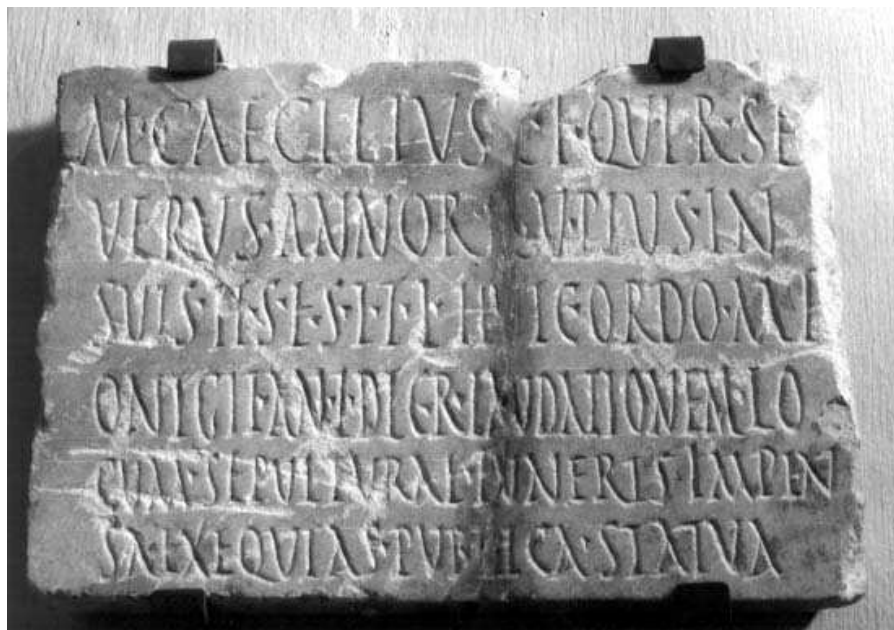 M·CAECILIVS L·F·QVIR·SE
VERVS·ANNOR LV·PIVS·IN
SVIS·H·S·E·S·T·T·L·HVIC·ORDO·M·F
DECR·LAVDATIONEM·LO
CVM·SEPVLTVRAE·FVNERIS·IMPEN
SA·EXEQVIAS·PVBLICA·STATVA